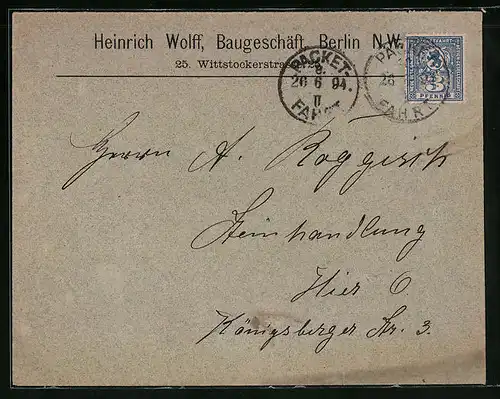 Heinrich Wolff, Baugeschäft, Berlin N.W.
25. Wittstockerstrasse 25.
PACKET-
9.
20 6 94.
II
FAHRT
PA
FAHRT
3
PFENNIG
Herrn A. Roggisch
Steinhandlung
Hier O.
Königsberger Str. 3.